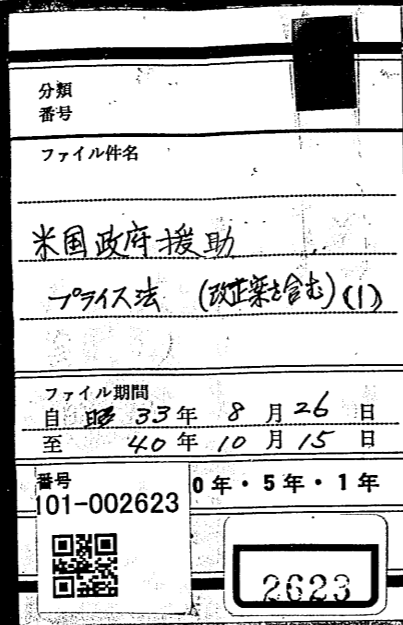 分類
番号
ファイル件名
米国政府援助
プライス法 (改正案を含む)(1)
ファイル期間
自 昭 33 年 8 月 26 日
至 40 年 10 月 15 日
番号
101-002623
0年・5年・1年
2623